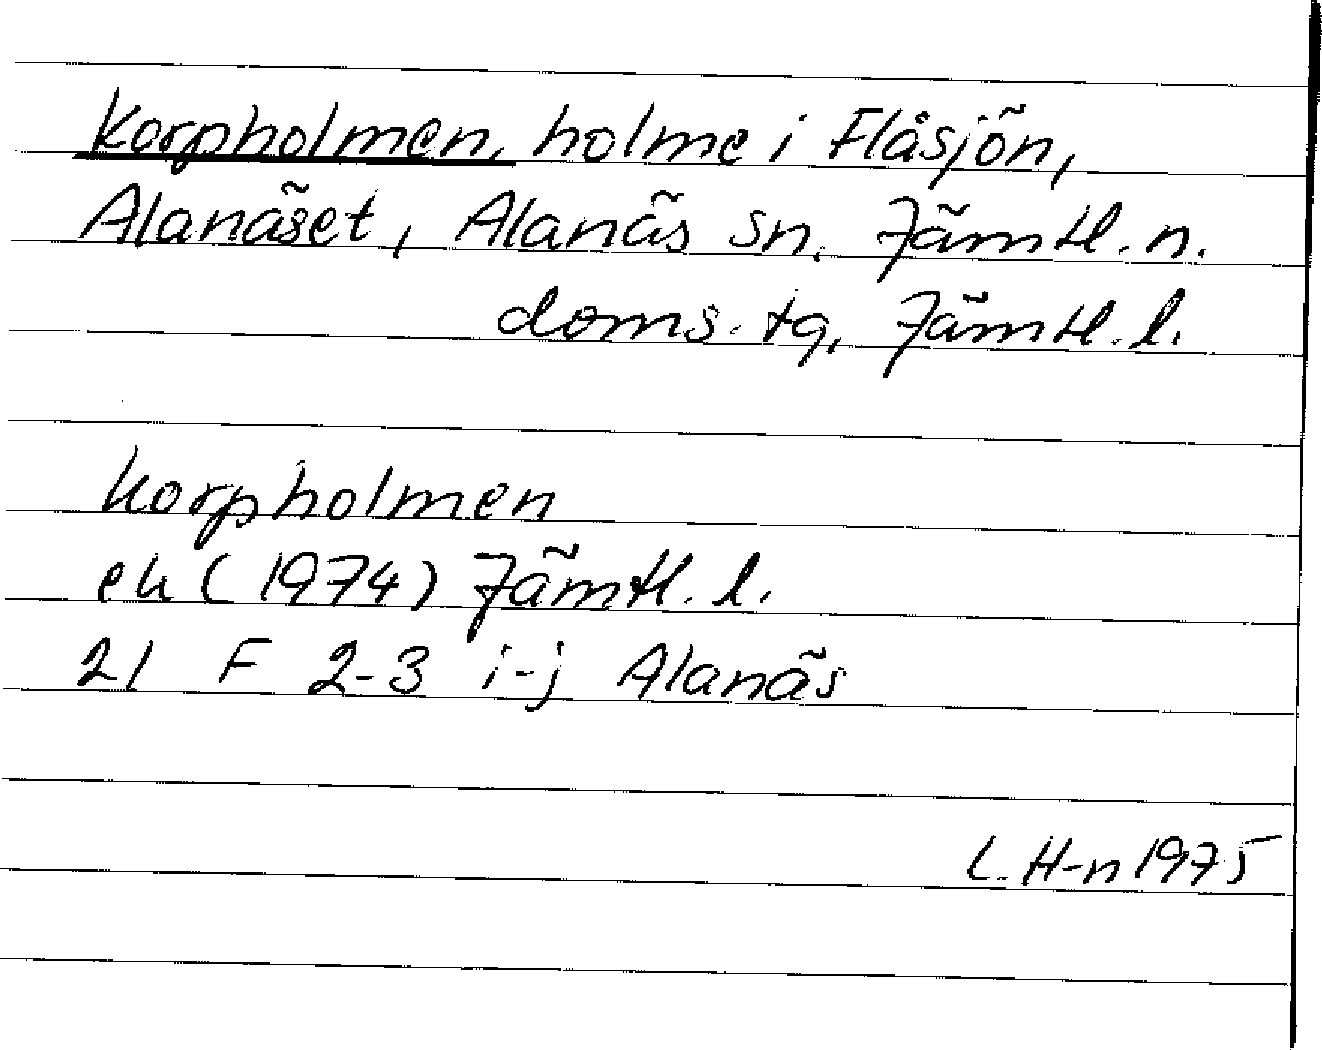 Korpholmen, holme i Flåsjön,
Alanäset, Alanäs sn. Jämtl. n.
doms. tg, Jämtl. l.
Korpholmen
ek (1974) Jämtl. l.
21 F 2-3 i-j Alanäs
L. H-n 1975